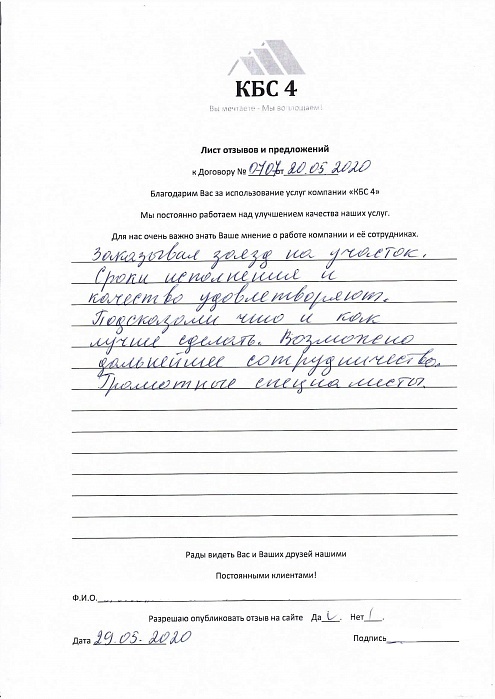 КБС 4
Вы мечтаете - Мы воплощаем!
Лист отзывов и предложений
к Договору № 0707 от 20.05 2020
Благодарим Вас за использование услуг компании «КБС 4»
Мы постоянно работаем над улучшением качества наших услуг.
Для нас очень важно знать Ваше мнение о работе компании и её сотрудниках.
Заказывал заезд на участок.
Сроки исполнения и
качество удовлетворяют.
Подсказали что и как
лучше сделать. Возможено
дальнейшее сотрудничество.
Грамотные специалисты.
Рады видеть Вас и Ваших друзей нашими
Постоянными клиентами!
Ф.И.О.
Разрешаю опубликовать отзыв на сайте Да V. Нет .
Дата 29.05.2020 Подпись